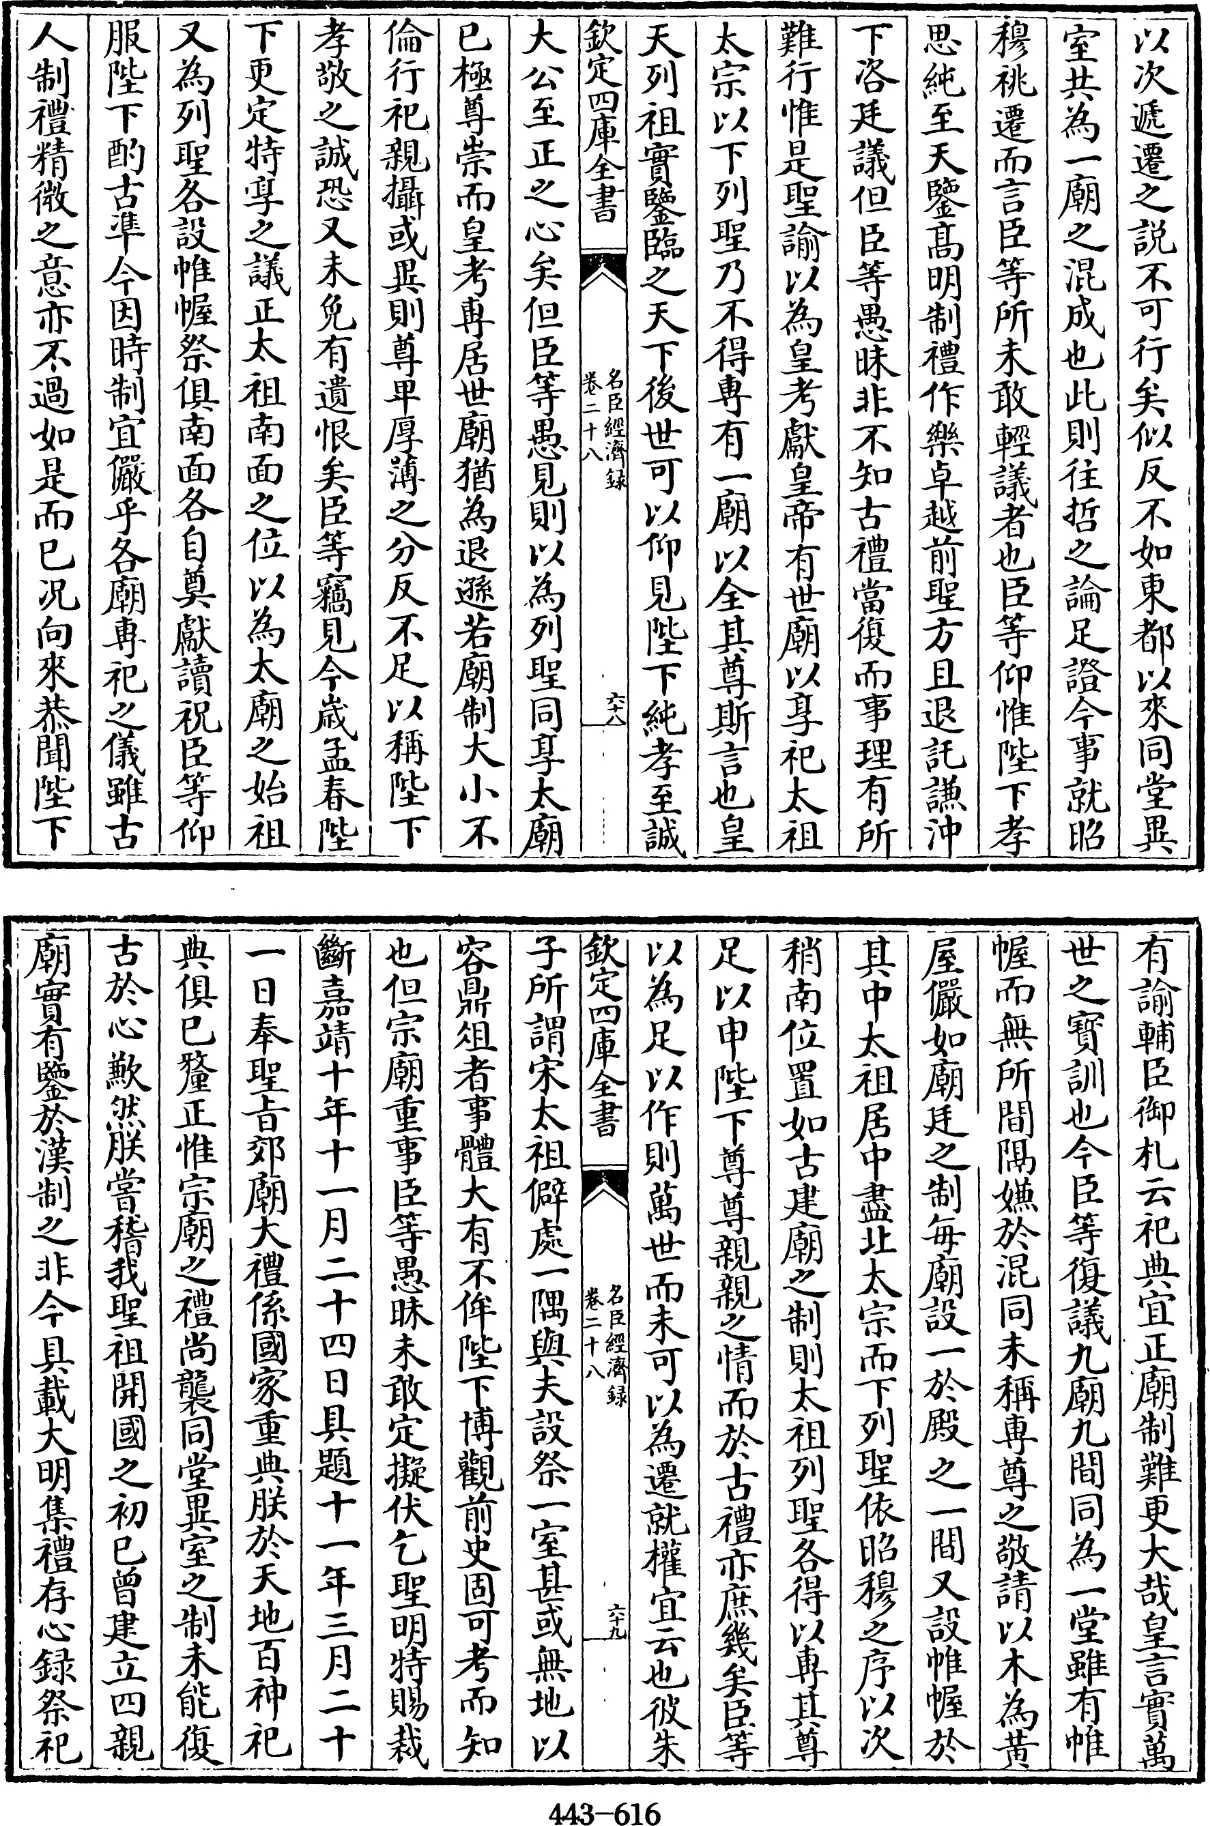 以次遞遷之説不可行矣似反不如東都以來同堂異
室共為一廟之混成也此則往哲之論足證今事就昭
穆祧遷而言臣等所未敢輕議者也臣等仰惟陛下孝
思純至天鑒髙明制禮作樂卓越前聖方且退託謙沖
下咨廷議但臣等愚昧非不知古禮當復而事理有所
難行惟是聖諭以為皇考獻皇帝有世廟以享祀太祖
太宗以下列聖乃不得専有一廟以全其尊斯言也皇
天列祖實鑒臨之天下後世可以仰見陛下純孝至誠
欽定四庫全書
名臣經濟録
卷二十八
六十八
大公至正之心矣但臣等愚見則以為列聖同享太廟
已極尊崇而皇考専居世廟猶為退遜若廟制大小不
倫行祀親攝或異則尊卑厚薄之分反不足以稱陛下
孝敬之誠恐又未免有遺恨矣臣等竊見今歳孟春陛
下更定特享之議正太祖南面之位以為太廟之始祖
又為列聖各設帷幄祭俱南面各自奠獻讀祝臣等仰
服陛下酌古準今因時制宜儼乎各廟専祀之儀雖古
人制禮精微之意亦不過如是而已况向來恭聞陛下
有諭輔臣御札云祀典宜正廟制難更大哉皇言實萬
世之寳訓也今臣等復議九廟九間同為一堂雖有帷
幄而無所間隔嫌於混同未稱専尊之敬請以木為黄
屋儼如廟廷之制每廟設一於殿之一間又設帷幄於
其中太祖居中盡北太宗而下列聖依昭穆之序以次
稍南位置如古建廟之制則太祖列聖各得以専其尊
足以申陛下尊尊親親之情而於古禮亦庶幾矣臣等
以為足以作則萬世而未可以為遷就權宜云也彼朱
欽定四庫全書
名臣經濟録
卷二十八
六十九
子所謂宋太祖僻處一隅與夫設祭一室甚或無地以
容鼎俎者事體大有不侔陛下博觀前史固可考而知
也但宗廟重事臣等愚昧未敢定擬伏乞聖明特賜裁
斷嘉靖十年十一月二十四日具題十一年三月二十
一日奉聖旨郊廟大禮係國家重典朕於天地百神祀
典俱已釐正惟宗廟之禮尚襲同堂異室之制未能復
古於心歉然朕嘗稽我聖祖開國之初已曽建立四親
廟實有鑒於漢制之非今具載大明集禮存心録祭祀
443-616